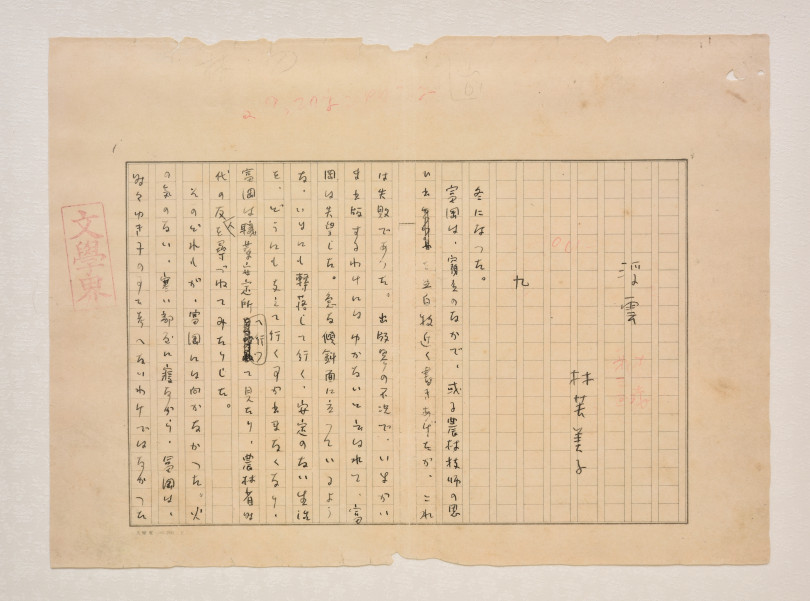 浮雲
林芙美子
九
冬になつた。
富岡は、貧乏のなかで、或る農林技師の思
ひ出 二百枚近く書きあげたが、これ
は失敗であつた。出版界の不況で、いまがい
ま出版するわけにはゆかないと云はれて、富
岡は失望した。急な傾斜面に立つているよう
な、いまにも轉落して行く、安定のない生活
を、どうにも支えて行く事が出来なくなり、
富岡は職業安定所へ行つて見たり、農林省時
代の友を尋づねてみたりした。
そのどれもが、富岡には向かなかつた。火
の気のない、寒い部屋に寝ながら、富岡は、
時々ゆき子の事を考へないわけではなかつた
文學東